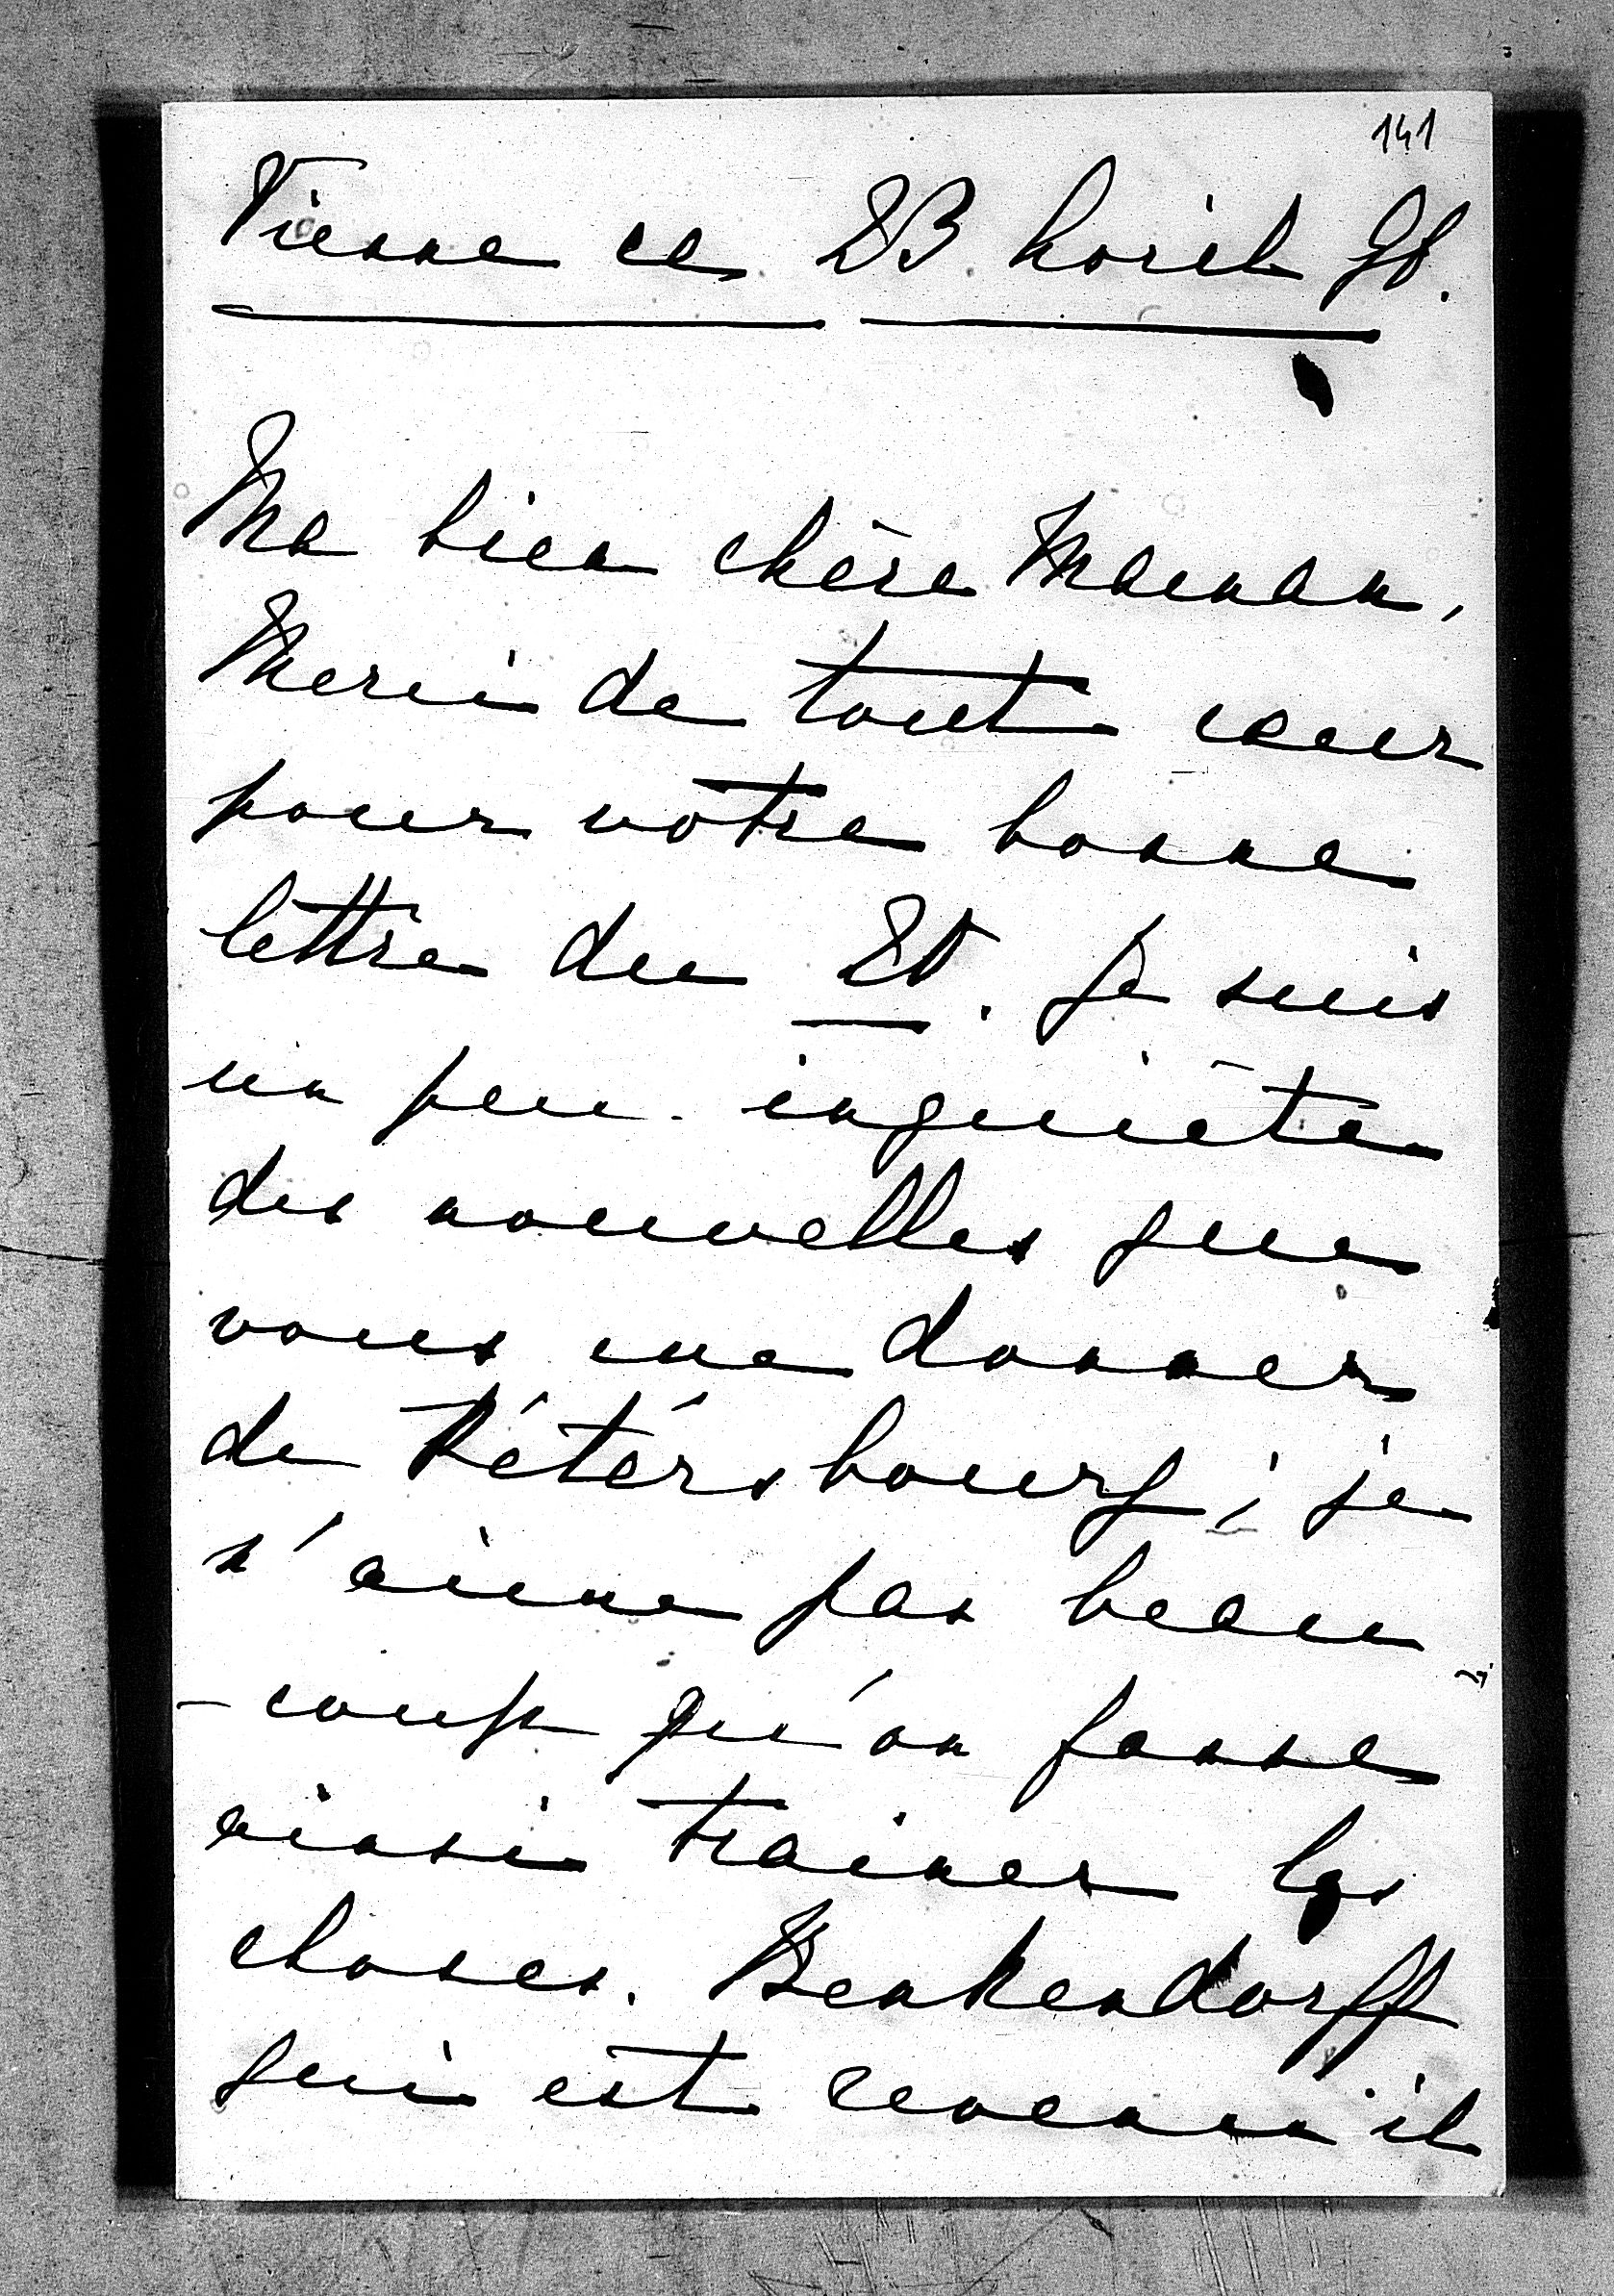 141
Vienne ce 23 Avril 96.
Ma bien chère Maman,
Merci de tout cœur
pour votre bonne
lettre du 20. Je suis
un peu inquiète
des nouvelles que
vous me donnez
de Pétersbourg; je
n'aime pas beau
-coup qu'on fasse
ainsi trainer les
choses. Benkendorff
qui est revenu il